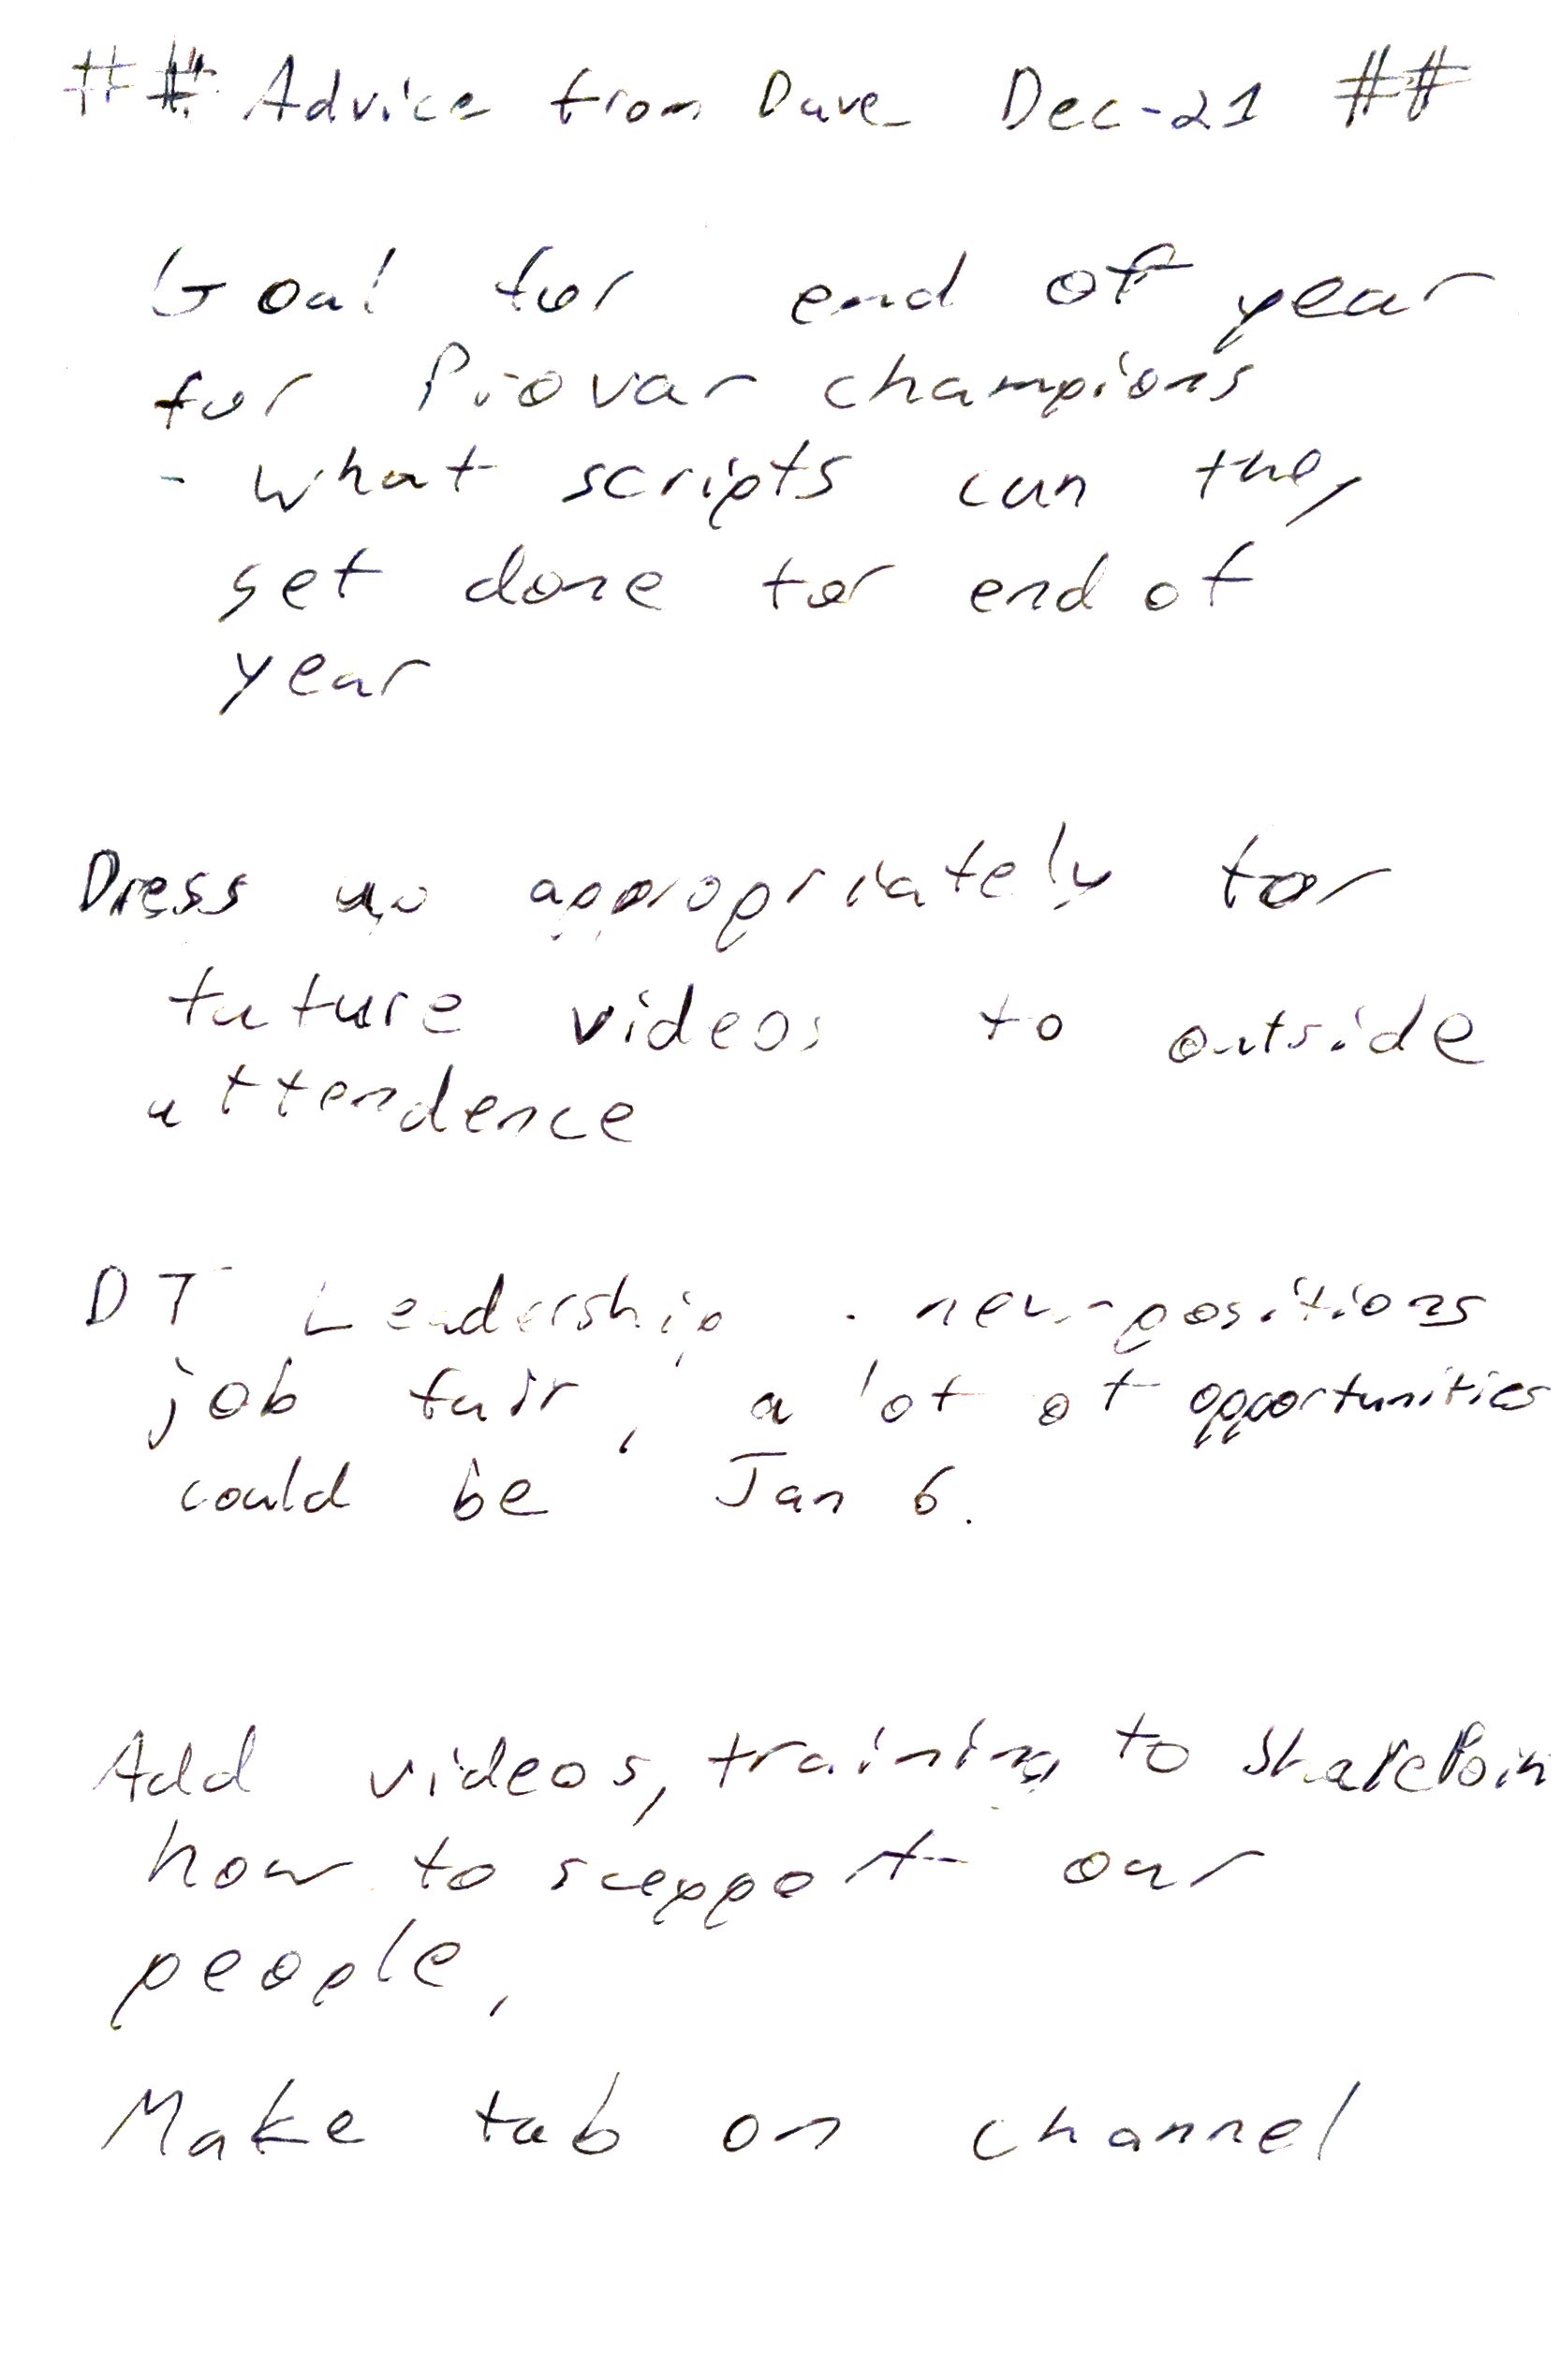 ## Advice from Dave Dec-21 ##
Goal for end of year
for Piovar champions
- what scripts can they
get done for end of
year
Dress up appropriately for
future videos to outside
attendence
DT Leadership - new-positions
job fair, a lot of opportunities
could be Jan 6.
Add videos, training to SharePoin
how to support our
people,
Make tab on channel